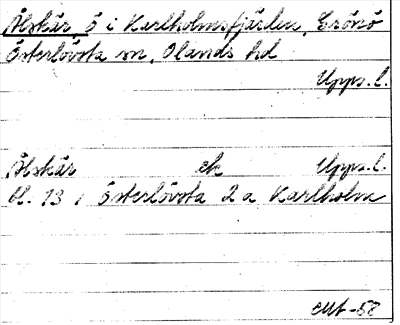 Ålskär, ö i Karlholmsfjärden, Grönö
Österlövsta sn, Olands hd
Upps. l.
Ålskär ek Upps. l.
bl. 13 i Österlövsta 2 a Karlholm
-58